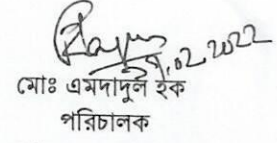 .02.2022
মোঃ এমদাদুল হক
পরিচালক